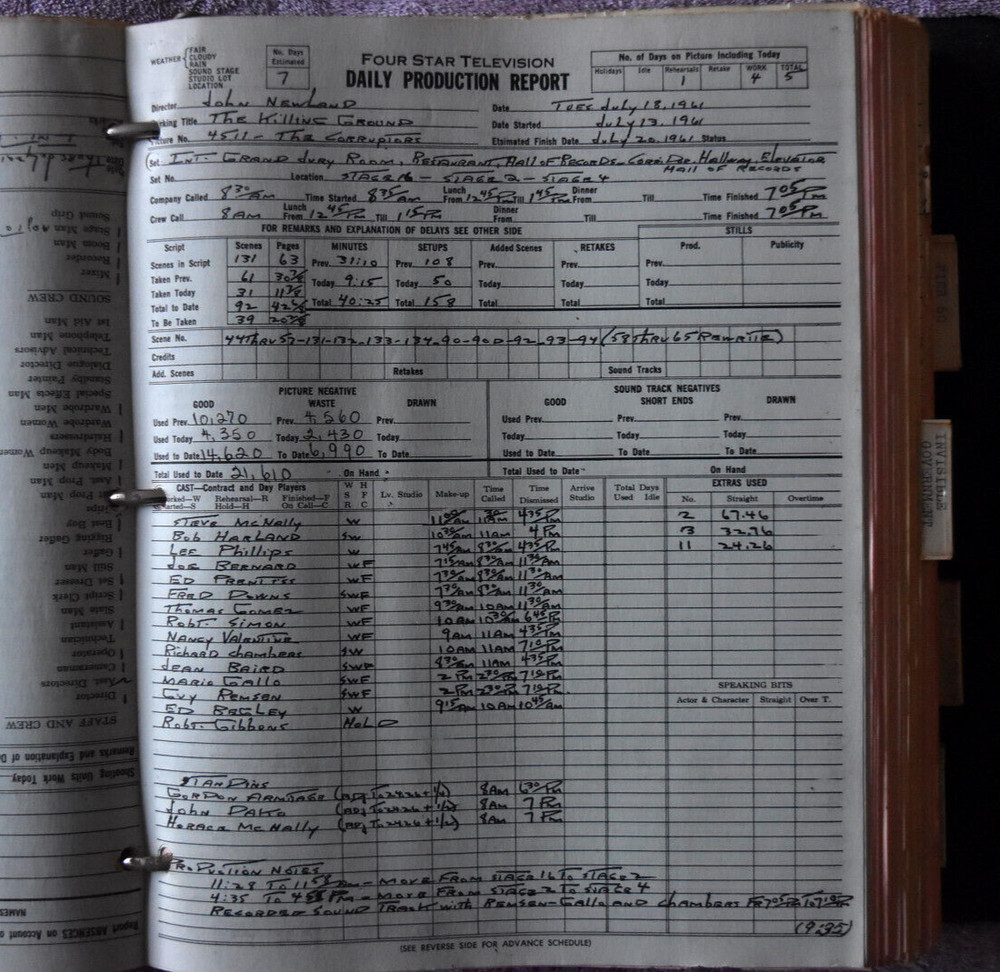 WEATHER
FAIR
CLOUDY
RAIN
SOUND STAGE
STUDIO LOT
LOCATION
No. Days Estimated
7
FOUR STAR TELEVISION
DAILY PRODUCTION REPORT
No. of Days on Picture Including Today
Holidays Idle Rehearsals Retake WORK TOTAL
1 4 5
Director John Newland Date Tues July 18, 1961
Working Title The Killing Ground Date Started July 13, 1961
Picture No. 4511 - The Corruptors Estimated Finish Date July 20, 1961 Status
Set Int- Grand Jury Room, Restaurant, Hall of Records- Corridor, Hallway, Elevator
Hall of Records
Set No. Location Stage 16 - Stage 2 - Stage 4
Company Called 8 30 AM Time Started 8 35 AM Lunch From 12 45 PM Till 1 45 PM Dinner From Till Time Finished 7 05 PM
Crew Call 8 AM Lunch From 12 45 PM Till 1 15 PM Dinner From Till Time Finished 7 05 PM
FOR REMARKS AND EXPLANATION OF DELAYS SEE OTHER SIDE STILLS
Script Scenes Pages MINUTES SETUPS Added Scenes RETAKES Prod. Publicity
Scenes in Script 131 63 Prev. 31:10 Prev. 108 Prev. Prev. Prev.
Taken Prev. 61 30 7/8 Today 9:15 Today 50 Today Today Today
Taken Today 31 11 7/8
Total to Date 92 42 6/8 Total 40:25 Total 158 Total Total Total
To Be Taken 39 20 2/8
Scene No. 44 Thru 57-131-132-133-134-90-90D-92-93-94 (58 Thru 65 Rewrite)
Credits
Add. Scenes Retakes Sound Tracks
PICTURE NEGATIVE SOUND TRACK NEGATIVES
GOOD WASTE DRAWN GOOD SHORT ENDS DRAWN
Used Prev. 10,270 Prev. 4,560 Prev. Used Prev. Prev. Prev.
Used Today 4,350 Today 2,430 Today Used Today Today Today
Used to Date 14,620 To Date 6,990 To Date Used to Date To Date To Date
Total Used to Date 21,610 On Hand Total Used to Date On Hand
CAST—Contract and Day Players W H S F R C Lv. Studio Make-up Time Called Time Dismissed Arrive Studio Total Days Used Idle EXTRAS USED
Worked—W Rehearsal—R Finished—F
Started—S Hold—H On Call—C
No. Straight Overtime
Steve McNally W 11 AM 4 35 PM 2 67.46
Bob Harland SW 10 30 AM 11 AM 4 PM 3 32.76
Lee Phillips W 7 45 AM 8 30 AM 4 35 PM 11 24.26
Joe Bernard WF 7 15 AM 8 30 AM 11 30 AM
Ed Prentiss WF 7 30 AM 8 30 AM 11 30 AM
Fred Downs SWF 7 30 AM 8 30 AM 11 30 AM
Thomas Gomez WF 9 30 AM 10 AM 11 30 AM
Robt. Simon WF 10 AM 10 30 AM 6 45 PM
Nancy Valentine WF 9 AM 11 AM 4 35 PM
Richard Chambers SW 10 AM 11 AM 7 10 PM
Jean Baird SWF 8 30 AM 11 AM 4 35 PM
Mario Gallo SWF 2 PM 2 30 PM 7 10 PM
Guy Remsen SWF 2 PM 2 30 PM 7 10 PM
Ed Begley W 9 15 AM 10 AM 10 45 AM
Robt. Gibbons Hold
SPEAKING BITS
Actor & Character Straight Over T.
Standins
Gordon Armitage (Adj To 24.26 + 1/2) 8 AM 6 30 PM
John Dayo (Adj To 24.26 + 1/2) 8 AM 7 PM
Horace McNally (Adj To 24.26 + 1/2) 8 AM 7 PM
Production Notes
11:28 To 11:58 AM - Move From Stage 16 To Stage 2
4:35 To PM - Move From Stage 2 To Stage 4
Recorded Sound Track with Remsen-Gallo and Chambers
(9:35)
(SEE REVERSE SIDE FOR ADVANCE SCHEDULE)
INVISIBLE GOVERNMENT
STAFF AND CREW
Director
Asst. Directors
Cameraman
Operator
Technician
Assistant
Slate Man
Script Clerk
Set Dresser
Still Man
Gaffer
Rigging Gaffer
Best Boy
Grips
Prop Man
Asst. Prop Man
Makeup Men
Hairdressers
Body Makeup Women
Wardrobe Women
Wardrobe Men
Special Effects Man
Standby Painter
Dialogue Director
Technical Advisors
Telephone Man
1st Aid Man
SOUND CREW
Mixer
Recorder
Boom Man
Stage Man
Sound Grip
Shooting Units Work Today